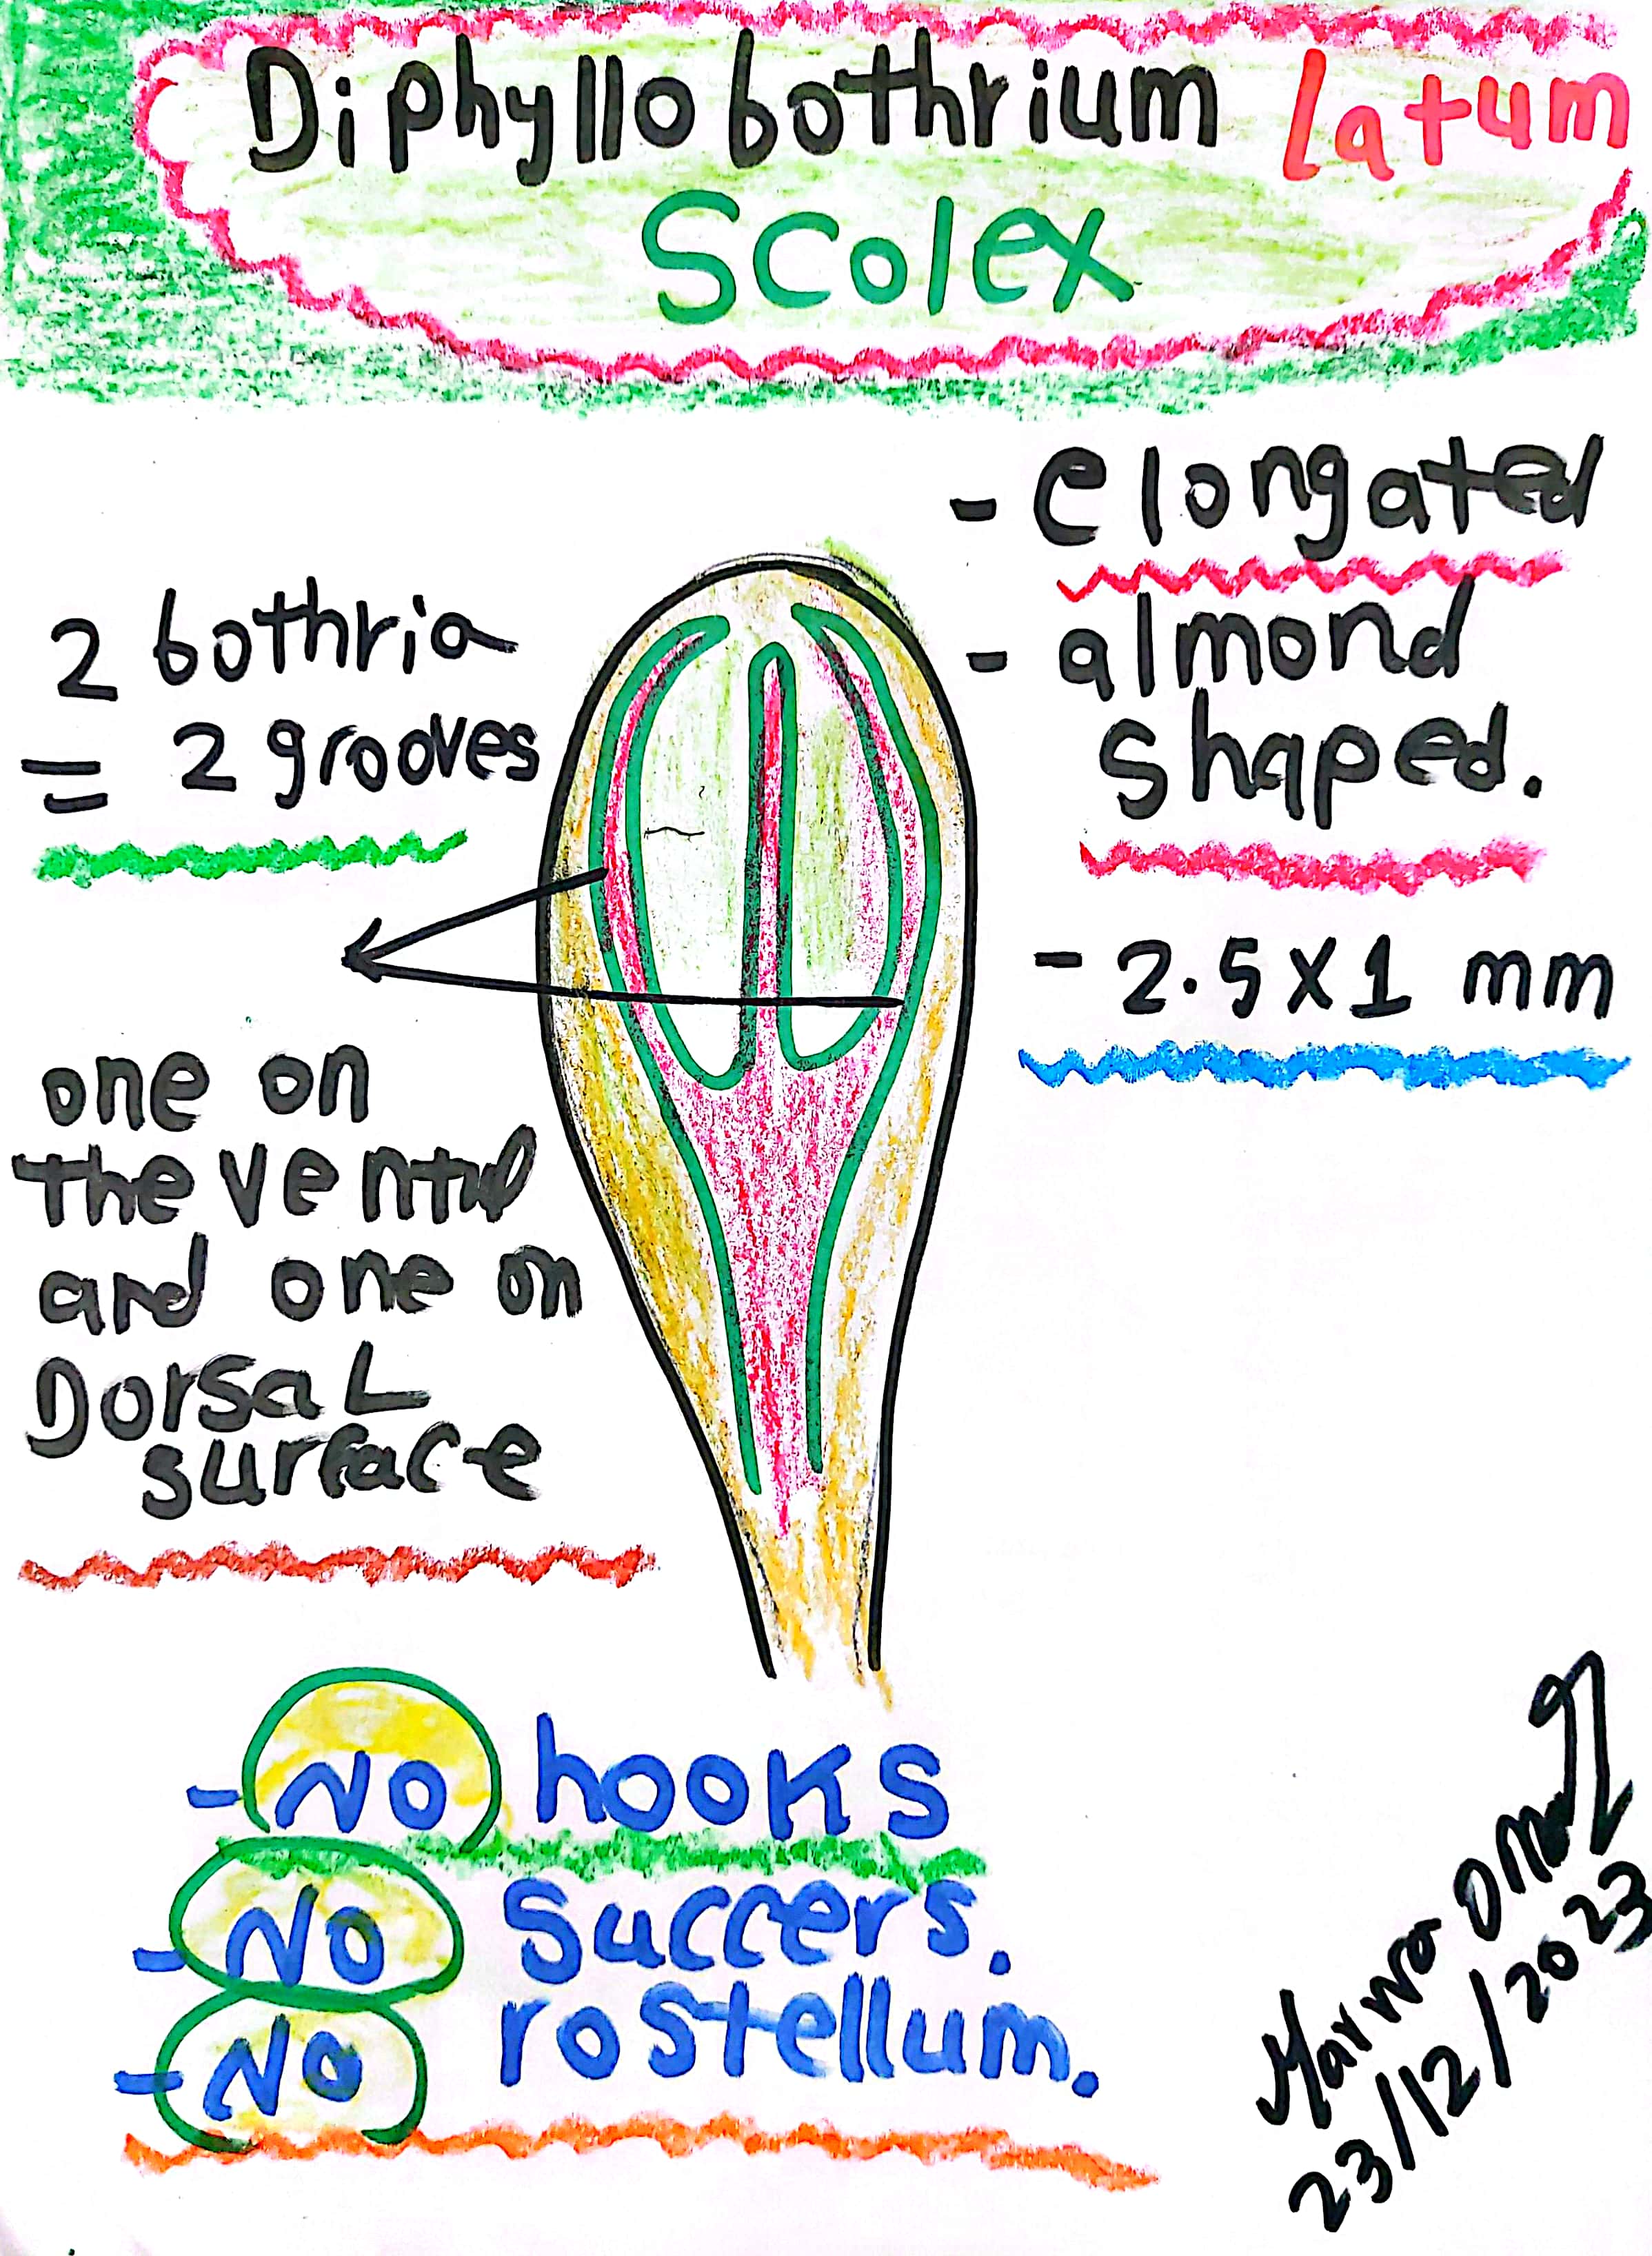 Diphyllobothrium Latum
Scolex
- elongated
- almond
shaped.
- 2.5 X 1 mm
2 bothria
= 2 grooves
one on
the ventral
and one on
Dorsal
surface
- NO hooks
- NO Succers.
- NO rostellum.
Marwa Omar
23/12/2023